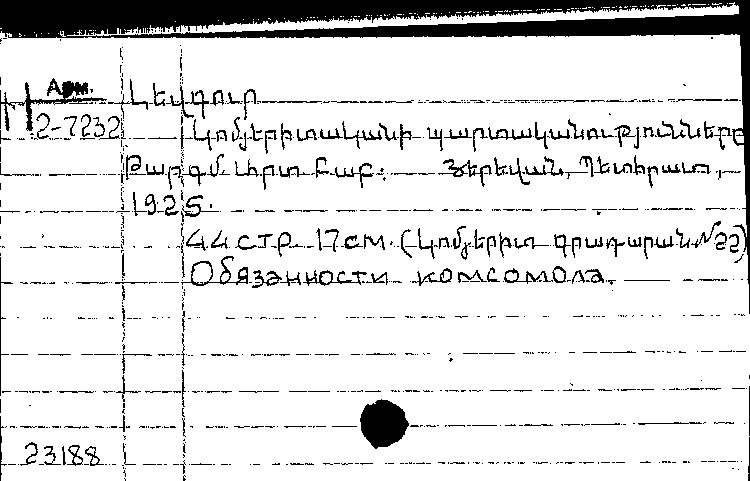 Арм.
Լեվգուր
2-7232
Կոմյերիտականի պարտականությունները
Թարգմ. Լիպտ Բաբ. Յերեվան, Պետհրատ,
1925.
44 стр. 17 см. (Կոմյերիտ գրադարան №22)
Обязанности комсомола.
23188